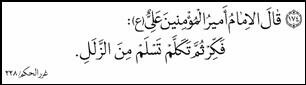 (١٧٤) قَالَ الإِمَامُ أَمِيرُ المُؤْمِنِينَ عَلِيٌّ (ع):
فَكِّرْ ثُمَّ تَكَلَّمْ تَسْلَمْ مِنَ الزَّلَلِ.
غرر الحكم/ ٢٢٨